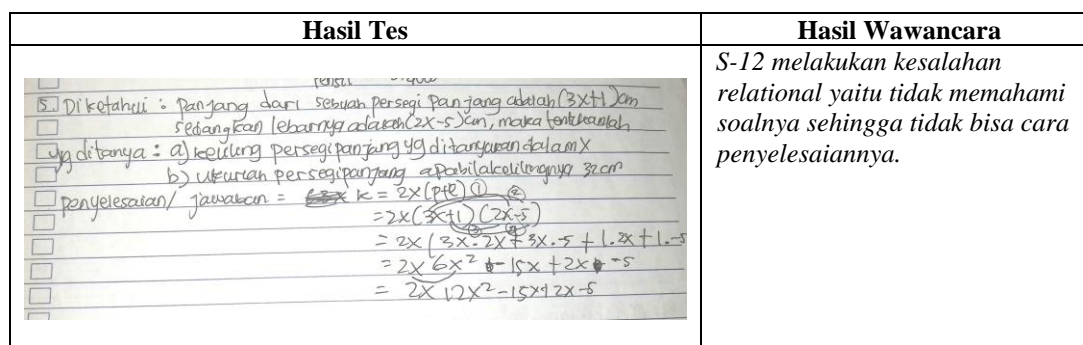 Hasil Tes
Hasil Wawancara
5. Diketahui : panjang dari sebuah persegi panjang adalah (3x+1)cm
sedangkan lebarnya adalah (2x-5)cm, maka tentukanlah
yg ditanya : a) keliling persegipanjang yg ditanyakan dalam x
b) ukuran persegipanjang apabila kelilingnya 32cm
penyelesaian/ jawaban = K = 2x(p+l) ① ②
=2x(3x+1)(2x-5)
③ ④
= 2x(3x.2x+3x.-5+1.2x+1.-5
=2x 6x² - 15x + 2x -5
= 2x 12x²-15x+2x-5
S-12 melakukan kesalahan
relational yaitu tidak memahami
soalnya sehingga tidak bisa cara
penyelesaiannya.